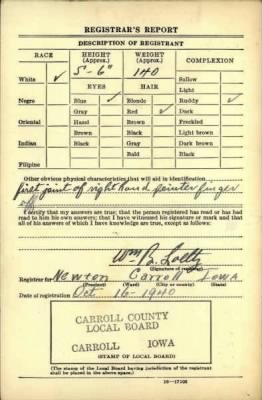 REGISTRAR'S REPORT
DESCRIPTION OF REGISTRANT
RACE HEIGHT (Approx.) WEIGHT (Approx.) COMPLEXION
White ✓ 5-6" 140 Sallow
EYES HAIR Light
Negro Blue ✓ Blonde Ruddy ✓
Gray Red ✓ Dark
Oriental Hazel Brown Freckled
Brown Black Light brown
Indian Black Gray Dark brown
Bald Black
Filipino
Other obvious physical characteristics that will aid in identification
first joint of right hand pointer finger
off
I certify that my answers are true; that the person registered has read or has had
read to him his own answers; that I have witnessed his signature or mark and that
all of his answers of which I have knowledge are true, except as follows:
Wm B.
(Signature of registrar)
Registrar for Newton Carroll Iowa
(Precinct) (Ward) (City or county) (State)
Date of registration Oct 16-1940
CARROLL COUNTY
LOCAL BOARD
CARROLL IOWA
(STAMP OF LOCAL BOARD)
(The stamp of the Local Board having jurisdiction of the registrant
shall be placed in the above space.)